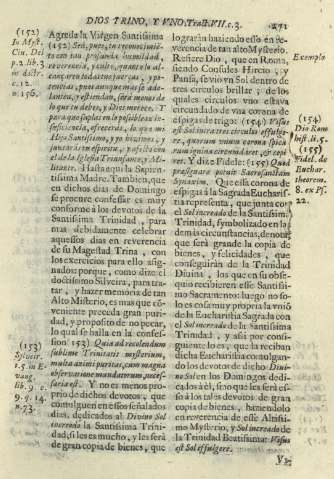 DIOS TRINO, Y VNO, Trat. XVII. c. 2. 271
(152)
In Myst.
Ciu. Dei
p. 2. lib. 3
in doctr.
c. 12.
n. 156.
Agreda la Virgen Santissima
(152) Sea, pues, tu reconocimiẽ-
to con tan profunda humildad,
reverencia, y culto, quanto lo al-
cançaren todas tus fuerças, y po-
tencias; pues aunque mas se ade-
lanten, y estiendan, serà menos de
lo que tu debes, y Dios merece. Y
para que suplas en lo possible tu in-
suficiencia, ofreceràs, lo que mi
Hijo Santissimo, y Yo hizimos, y
juntaràs con afecto, y
el de la Iglesia Triunfante, y Mi-
litante. Hasta aqui la Santis-
sima Madre. Tambien, que
en dichos dias de Domingo
se procure confessar es muy
conforme à los devotos de la
Santissima Trinidad, para
mas debidamente celebrar
aquessos dias en reverencia
de su Magestad Trina, con
los exercicios para ello asig-
nados: porque, como dize el
doctissimo Silveira, para tra-
tar, y hazer memoria de tan
Alto Misterio, es mas que cõ-
veniente preceda gran puri-
dad, y proposito de no pecar,
lo qual se halla en la confes-
sion (153) Quia ad recolendum
sublime Trinitatis mysterium,
multa animi puritas, cum magna
observatione mandatorum, neces-
saria est. Y no es menos pro-
prio de dichos devotos, que
comulguen en essos señalados
dias, dedicados al Divino Sol
increado la Santissima Trini-
dad, si les es mucho, y les serà
de gran copia de bienes, que
(153)
Sylveir.
t. 5. in Evang.
lib. 9
q. 9. 14.
n. 73.
lograràn haziendo esso en re-
verencia de tan alto Mysterio.
Refiere Dio, que en Roma,
siendo Consules Hircio, y
Pansa, se viò vn Sol dentro de
tres circulos brillar; de los
quales circulos vno estava
circundado de vna corona de
espigas de trigo: (154) Visus
est Sol intra tres circulos effulge-
re, quorum vnum corona spica-
rum
Y dize Fidele: (155) Quod
prasignare potuit Sacrosanctam
Synaxim. Que essa corona de
espigas à la Sagrada Eucharis-
tia representa, que junta con
el Sol increado de la Santissima
Trinidad, symbolizado en las
demàs circunstancias, denota,
que serà grande la copia de
bienes, y felicidades, que
conseguiràn de la Trinidad
Divina, los que en su obse-
quio recibieren esse Santissi-
mo Sacramento: luego no so-
lo es cosa muy propria la vniõ
de la Eucharistia Sagrada con
el Sol increado de la Santissima
Trinidad, y assi por consi-
guiente los, que la reciban
dicha Eucharistia comulgan-
do los devotos de dicho Divi-
no Sol en los Domingos dedi-
cados à èl, sino que les serà es-
so à los tales devotos de gran
copia de bienes, haziendolo
en reverencia de esse Altissi-
mo Mysterio, y Sol increado de
la Trinidad Beatissima: Visus
est Sol effulgere.
Exemplo
(154)
Dio Rom
hist. li. 5.
(155)
Fidel. de
Euchar.
theorem.
8. ex Ps.
22.